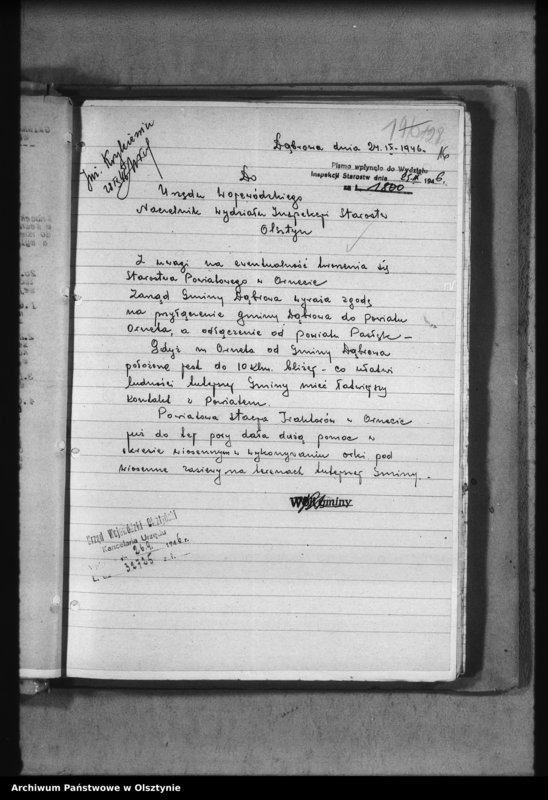 176 198
Dąbrowa dnia 24.IX-1946.
Pismo wpłynęło do Wydziału
Inspekcji Starostw dnia 1946 r.
za L. 1800
Do
Urzędu Wojewódzkiego
Naczelnik wydziału Inspekcji Starostw
Olsztyn
Z uwagi na ewentualność tworzenia się
Starostwa Powiatowego w Ornecie
Zarząd Gminy Dąbrowa wyraża zgodę
na przyłączenie gminy Dąbrowa do Powiatu
Orneta, a odłączenie od powiatu Pasłęk -
Gdyż m. Orneta od Gminy Dąbrowa
położone jest do 10 klm. bliżej - co ułatwi
ludności tutejszej Gminy mieć łatwiejszy
kontakt z Powiatem.
Powiatowa stacja Traktorów w Ornecie
już do tej pory dała dużą pomoc w
okresie wiosennym w wykonywaniu orki pod
wiosenne zasiewy na terenach tutejszej Gminy.
Wójt Gminy
Urząd Wojewódzki Olsztyński
Kancelaria Urzędu
26.9. 1946 r.
L. 32735
Archiwum Państwowe w Olsztynie